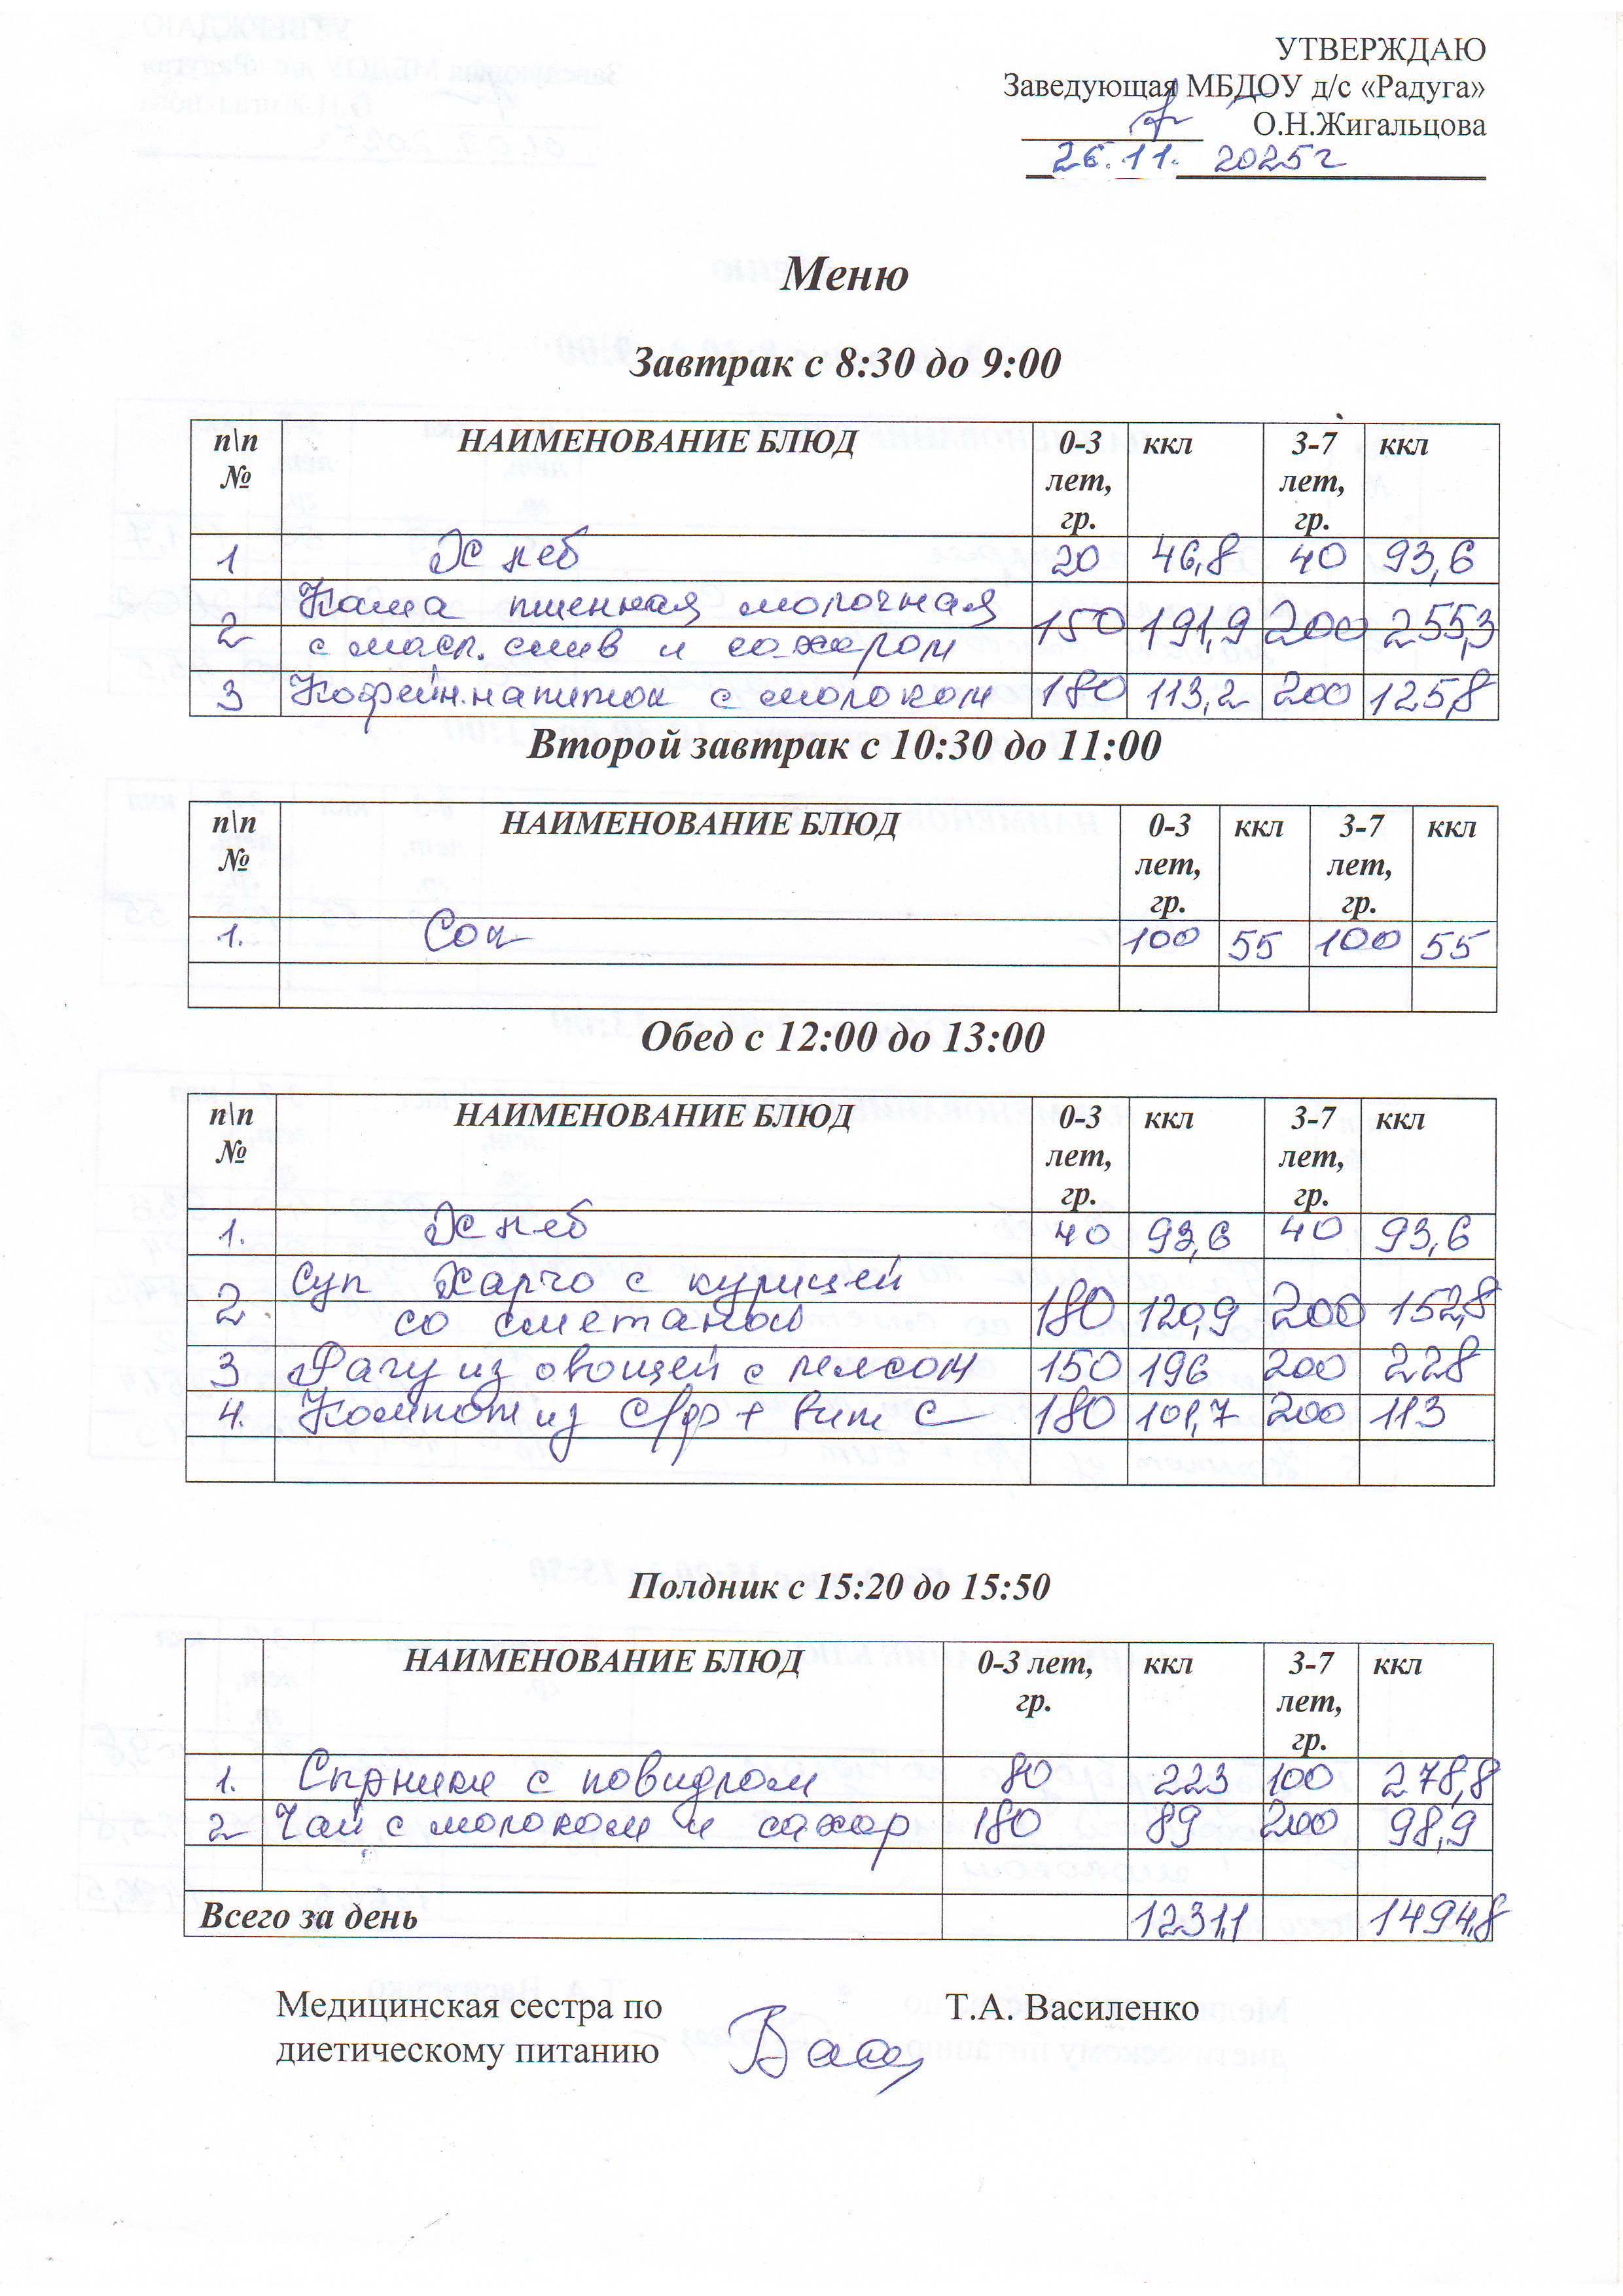 УТВЕРЖДАЮ
Заведующая МБДОУ д/с «Радуга»
О.Н.Жигальцова
26.11. 2025г
Меню
Завтрак с 8:30 до 9:00
п\п № НАИМЕНОВАНИЕ БЛЮД 0-3 лет, гр. ккл 3-7 лет, гр. ккл
1 Хлеб 20 46,8 40 93,6
2 Каша пшенная молочная 150 191,9 200 255,3
с масл. слив и сахаром
3 Кофейн.напиток с молоком 180 113,2 200 125,8
Второй завтрак с 10:30 до 11:00
п\п № НАИМЕНОВАНИЕ БЛЮД 0-3 лет, гр. ккл 3-7 лет, гр. ккл
1. Сок 100 55 100 55
Обед с 12:00 до 13:00
п\п № НАИМЕНОВАНИЕ БЛЮД 0-3 лет, гр. ккл 3-7 лет, гр. ккл
1. Хлеб 40 93,6 40 93,6
2. Суп Харчо с курицей 180 120,9 200 152,8
со сметаной
3 Рагу из овощей с мясом 150 196 200 228
4. Компот из с/ф + вит С 180 101,7 200 113
Полдник с 15:20 до 15:50
НАИМЕНОВАНИЕ БЛЮД 0-3 лет, гр. ккл 3-7 лет, гр. ккл
1. Сырники с повидлом 80 223 100 278,8
2 Чай с молоком и сахар 180 89 200 98,9
Всего за день 1231,1 1494,8
Медицинская сестра по Т.А. Василенко
диетическому питанию